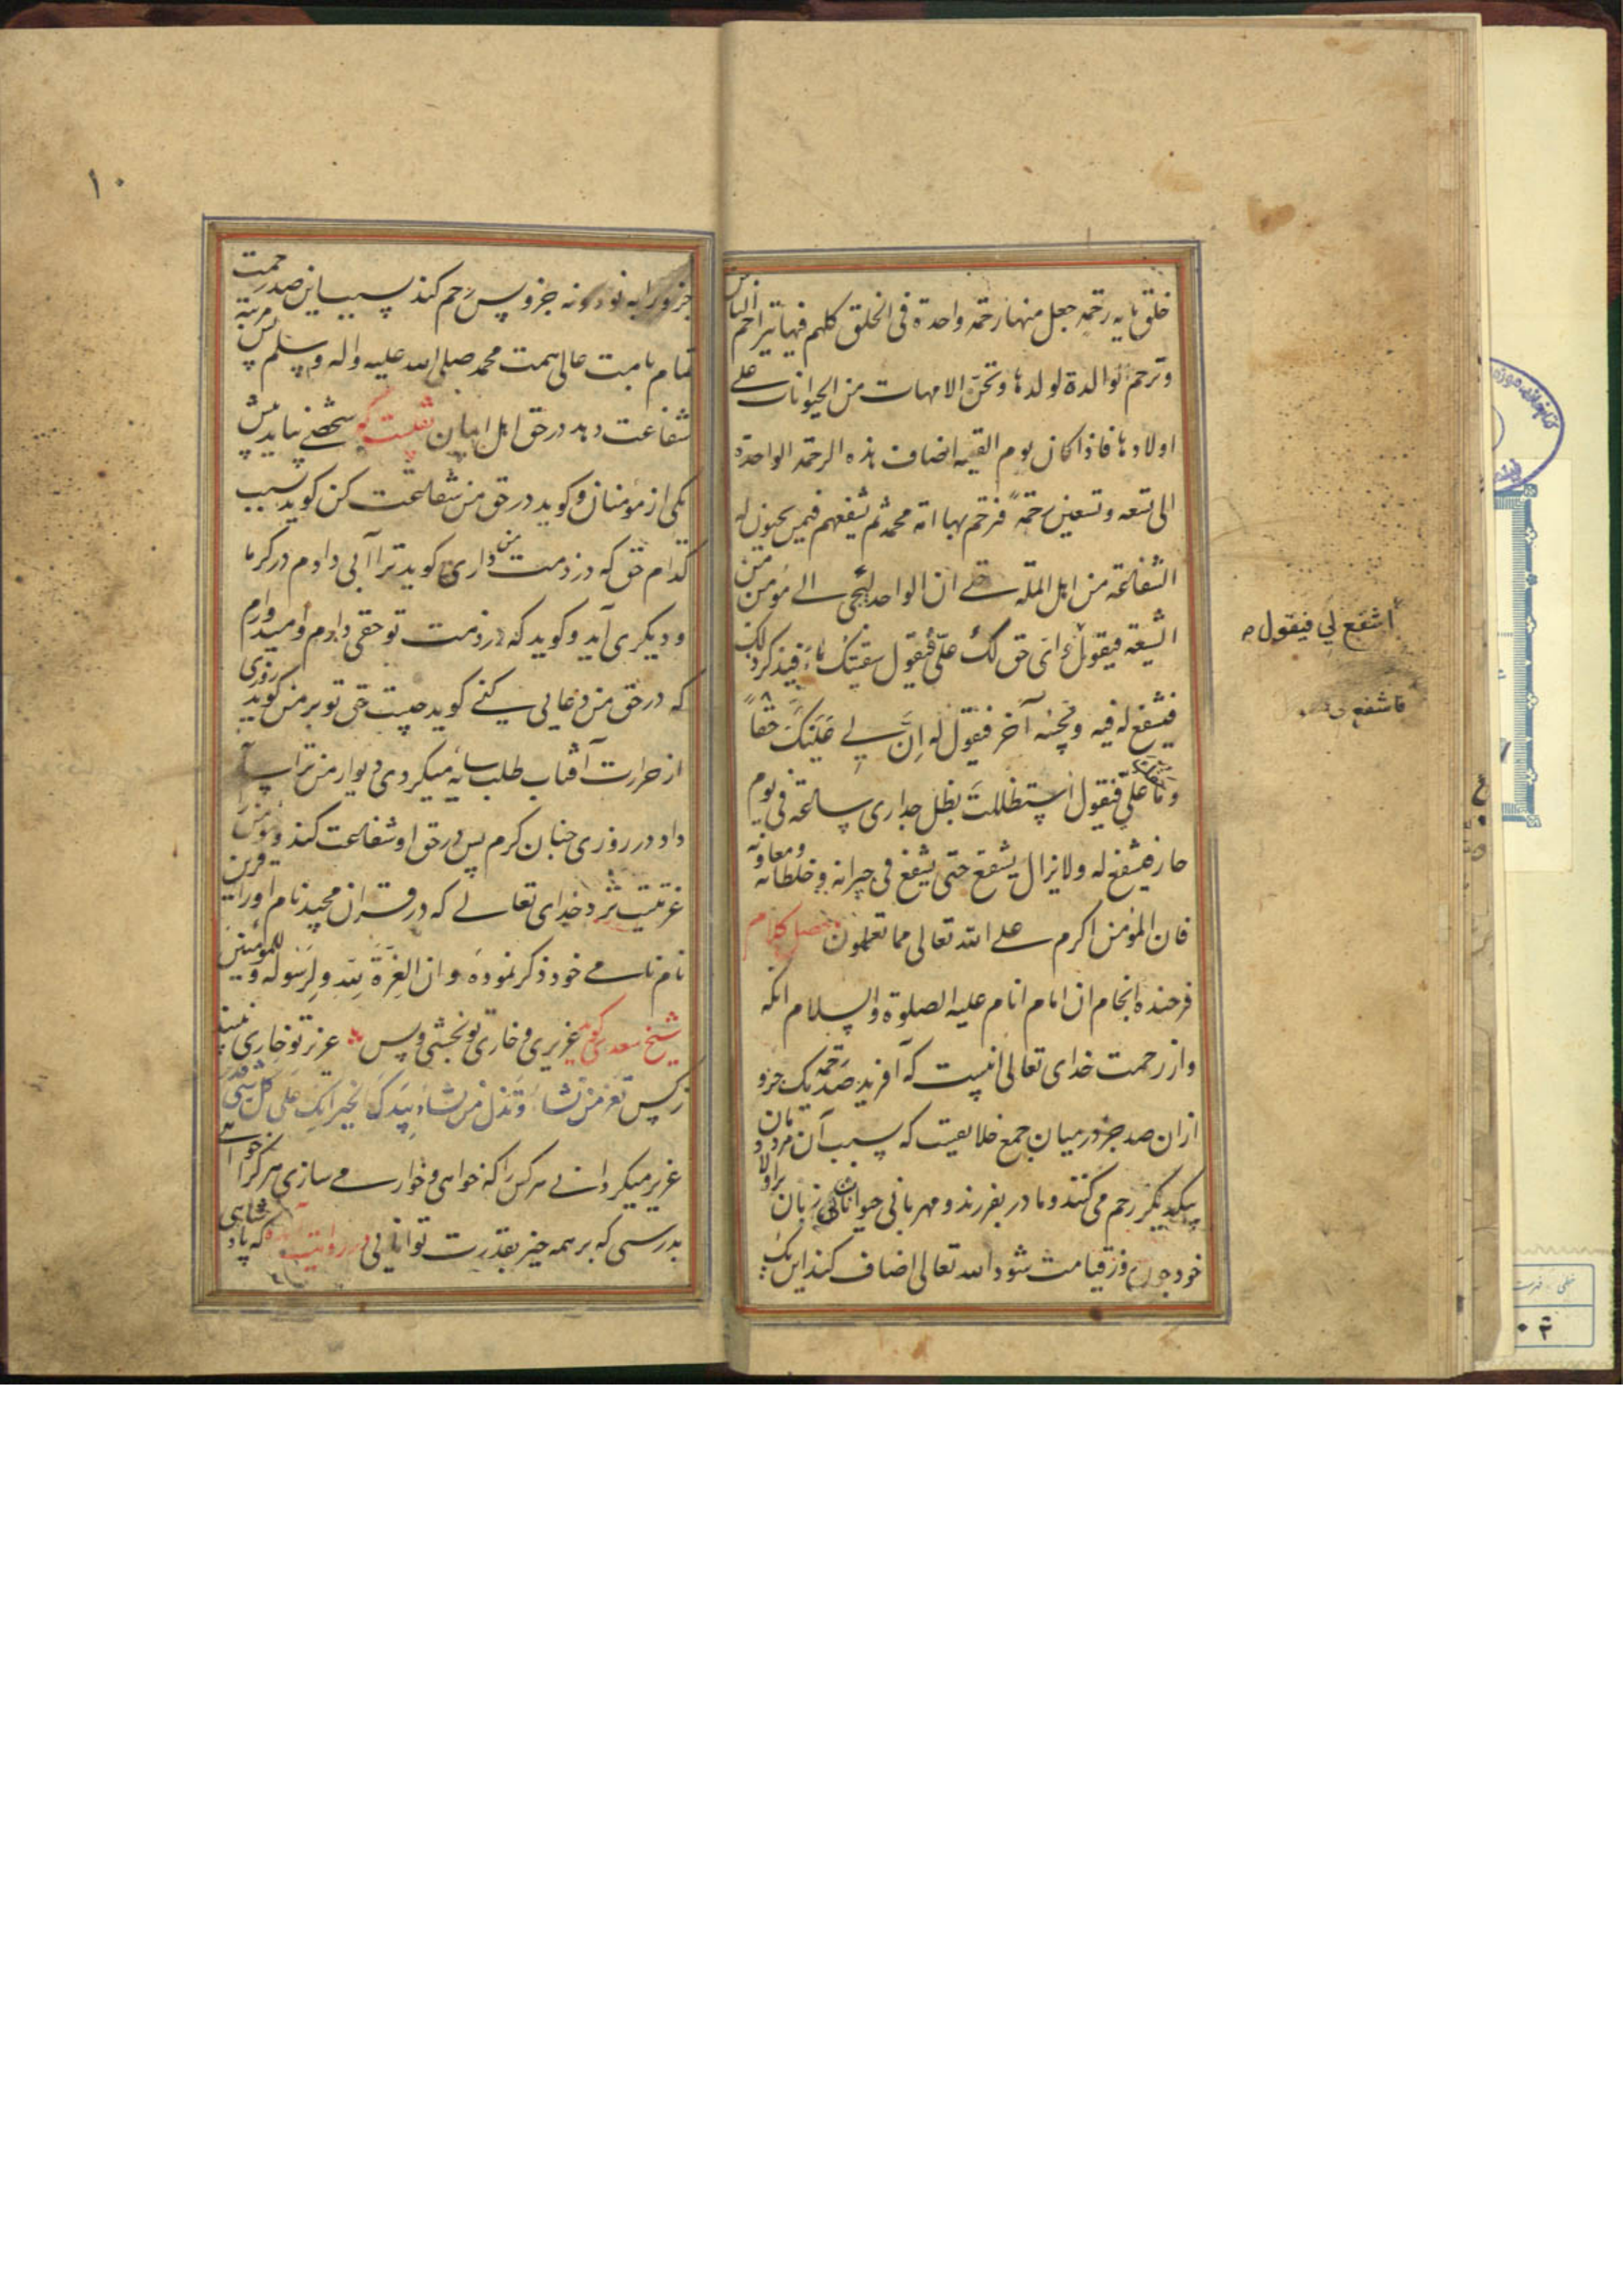 خلق مایه رحمة جعل منها رحمة واحدة فی الخلق کلهم فبها یتراحم الناس
وترحم الوالدة لولدها وتحن الامهات من الحیوانات علی
اولادها فاذا کان یوم القیمه اضاف هذه الرحمة الواحدة
الی تسعه وتسعین رحمة فرحم بها امة محمد ثم یشفعهم فیمن یحبون له
الشفاعة من اهل الملة حتی ان الواحد لیجیٔ الی مؤمن من
الشیعه فیقول ای حق لک علی فیقول سقیتک ماء فیذکر ذلک
أشفع لی فیقول
فیشفع له فیه ویجیٔه آخر فیقول له اِن لی علیک حقاً
فاشفع لی
وما حقک علی فیقول استظللت بظل جداری ساعة فی یوم
حار فیشفع له ولا یزال یشفع حتی یشفع فی جیرانه وخلطائه ومعاونه
فان المؤمن اکرم علی الله تعالی مما تعملون محصل کلام
فرخنده انجام ان امام انام علیه الصلوة والسلام انکه
واز رحمت خدای تعالی انیست که آفرید صد رحمة یک جزو
ازان صد جزو درمیان جمع خلایقیت که بسبب آن مردمان
بیکدیگر رحم می کنند ومادر بفرزند ومهربانی حیوانات بی زبان براولاد
خود چون روز قیامت شود الله تعالی اضاف کند این یک
۱۰
جزو را به نود ونه جزو پس رحم کند بسبب این صد رحمت
تمام بامت عالی همت محمد صلی الله علیه واله وسلم پس مرتبه
شفاعت دهد در حق اهل ایمان شخصی بیاید پیش
یکی از مؤمنان وکوید در حق من شفاعت کن کوید بسبب
کدام حق که در ذمت من داری کوید ترا آبی دادم در کرما
ودیکری آید وکوید که در ذمت تو حقی دارم وامیدوارم
که در حق من دعایی کنی کوید چیست حق تو بر من کوید روزی
از حرارت آفتاب طلب سایه میکردی دیوار من ترا سایه
داد در روزی چنان کرم پس در حق او شفاعت کند ومؤمن را
عزتیست نزد خدای تعالی که در قران مجید نام اورا قرین
نام نامی خود ذکر نموده وان العزة لله ولرسوله وللمؤمنین
شیخ سعدی کوید عزیزی وخاری تو بخشی وبس عزیز تو خاری نبیند
زکس تعز من تشاء وتذل من تشاء بیدک الخیر انک علی کل شئ قدیر
عزیز میکردانی هر کس را که خواهی وخوار می سازی هر کرا خواهی
بدرستی که بر همه چیز بقدرت توانایی در روایت آمده که پادشاهی